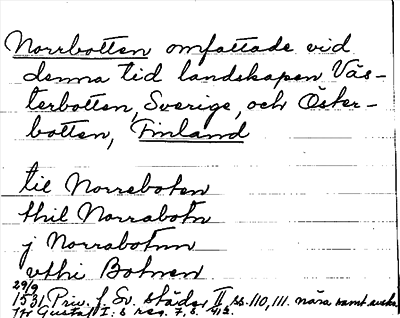 Norrbotten omfattade vid
denna tid landskapen Väs-
terbotten, Sverige, och Öster-
botten, Finland
til Norreboten
thil Norrabotn
j Norrabotnn
vthi Botnen
29/9
1531. Priv. f. Sv. städer II, ss. 110, 111. nära samt
Gustaf I:s reg. 7, s. 412.